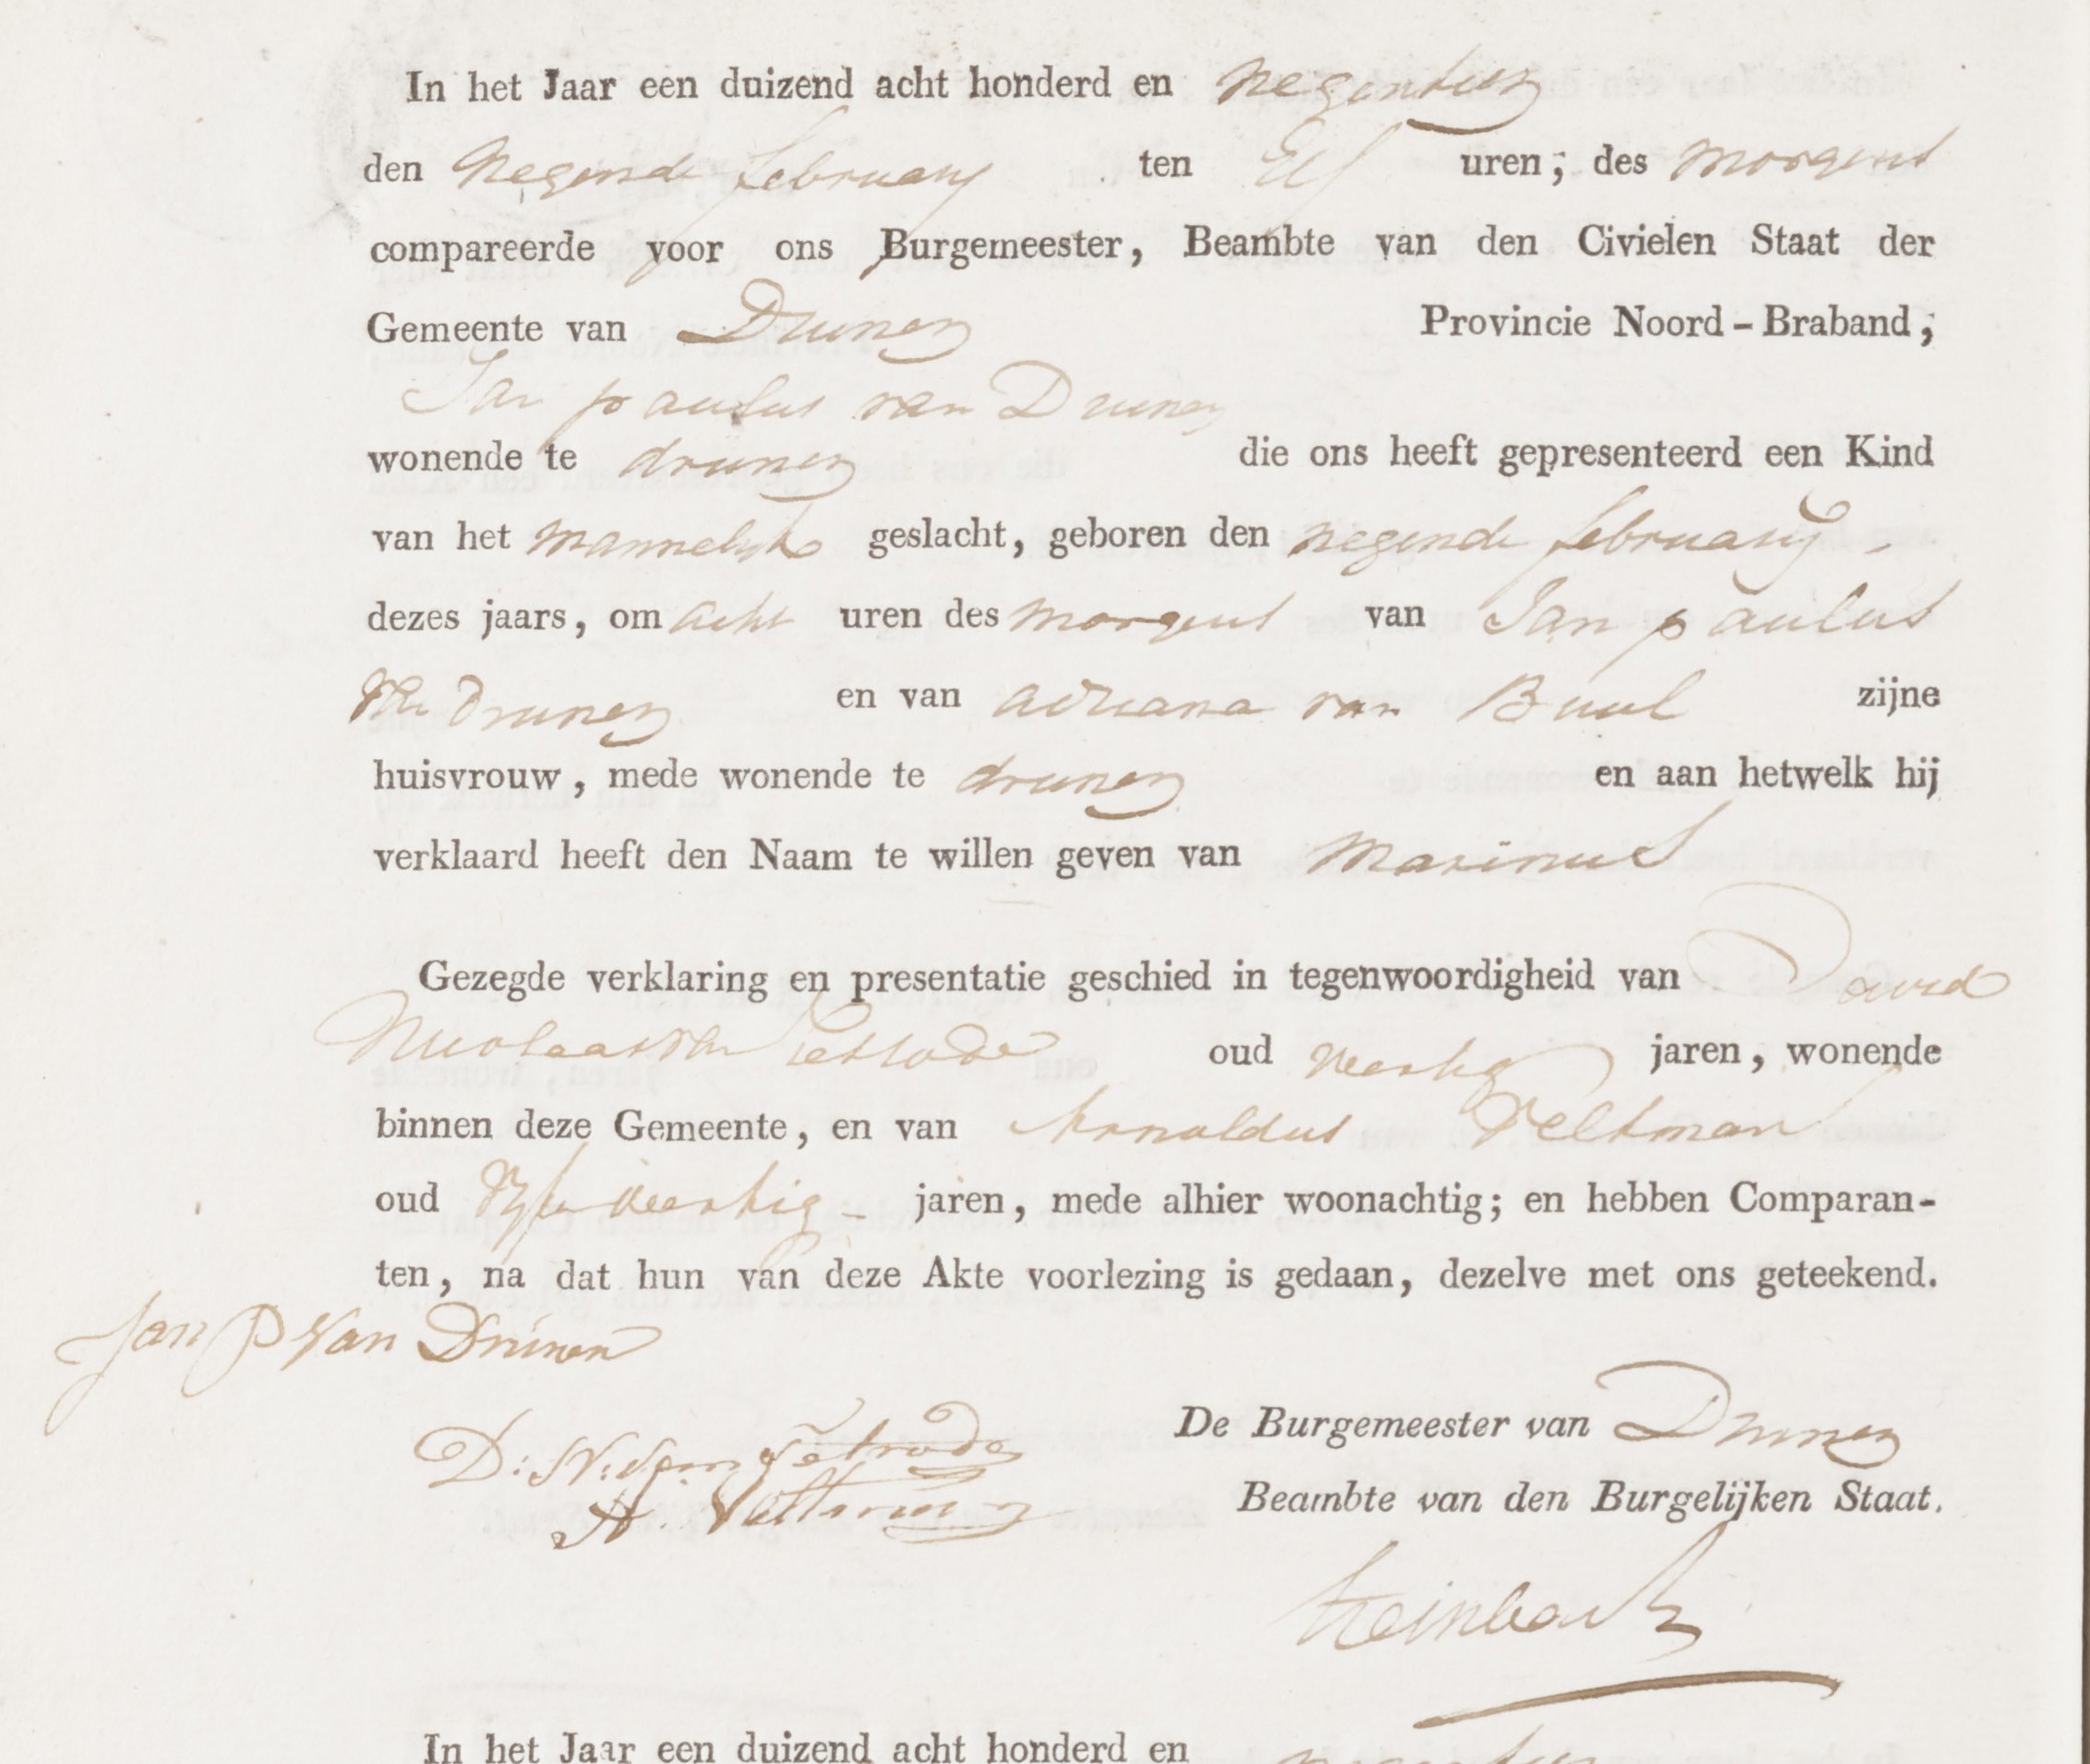 In het Jaar een duizend acht honderd en negentien
den negende february ten Elf uren; des morgens
compareerde voor ons Burgemeester, Beambte van den Civielen Staat der
Gemeente van Drunen Provincie Noord-Braband;
Jan paulus van Drunen
wonende te drunen die ons heeft gepresenteerd een Kind
van het mannelyke geslacht, geboren den negende february -
dezes jaars, om acht uren des morgens van Jan paulus
van Drunen en van adriana van Buul zijne
huisvrouw, mede wonende te drunen en aan hetwelk hij
verklaard heeft den Naam te willen geven van Marinus
Gezegde verklaring en presentatie geschied in tegenwoordigheid van David
Nicolaas van Tetrode oud veertig jaren, wonende
binnen deze Gemeente, en van Arnoldus Veltman
oud Vyfenveertig - jaren, mede alhier woonachtig; en hebben Comparan-
ten, na dat hun van deze Akte voorlezing is gedaan, dezelve met ons geteekend.
Jan P Van Drúnen
D: N: van Tetrode
A. Veltman
De Burgemeester van Drunen
Beambte van den Burgelijken Staat.
In het Jaar een duizend acht honderd en negentien